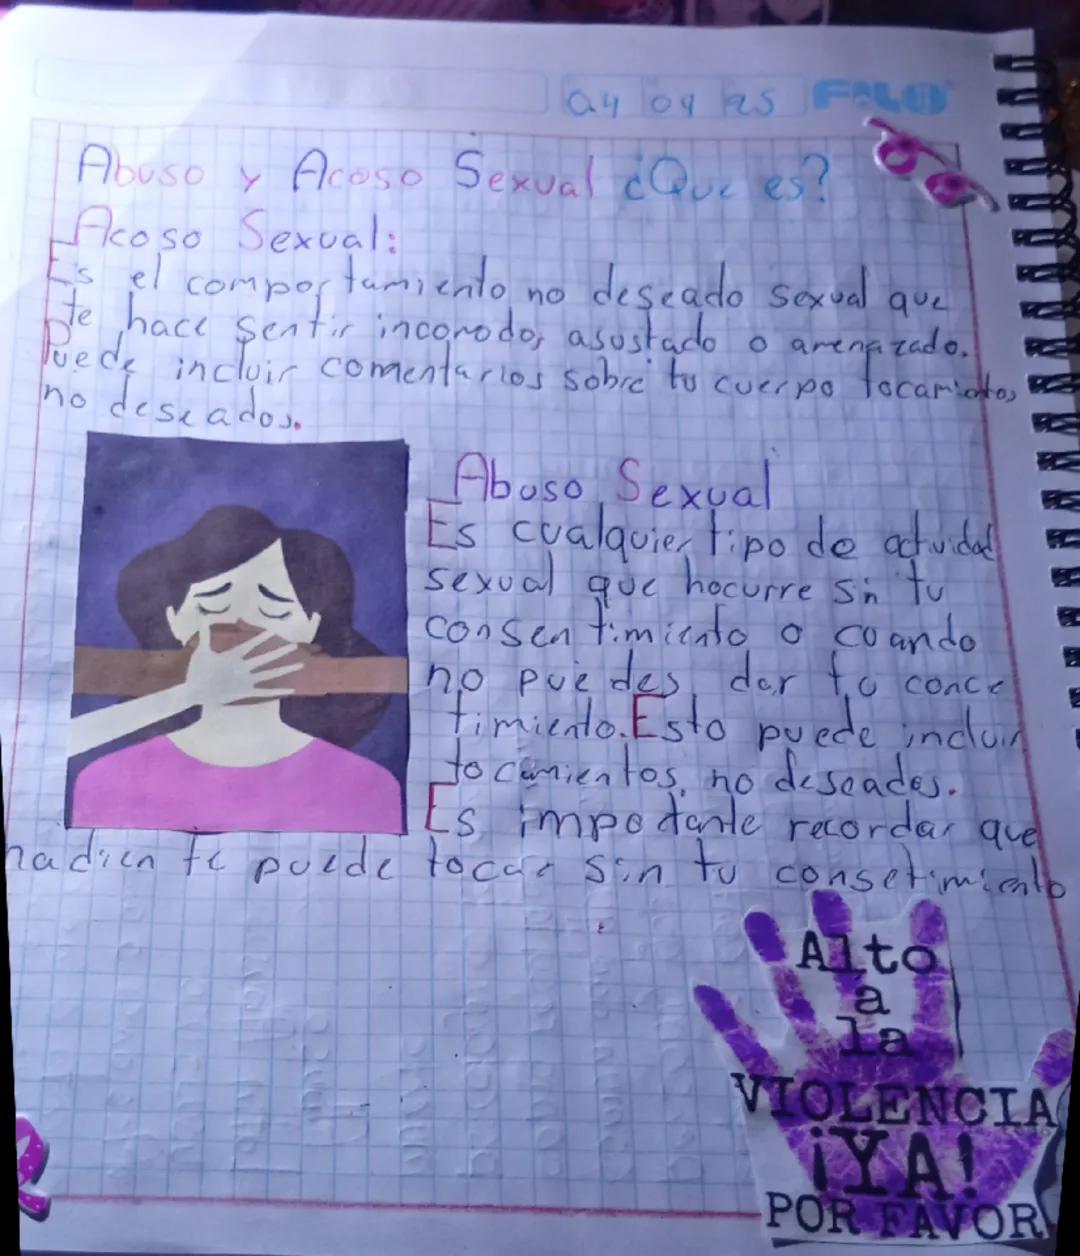 04 04 25 FILO
Abuso y Acoso Sexual ¿Que es?
Acoso Sexual:
Es el comportamiento no deseado sexual que
te hace sentir incomodo, asustado o amenazado.
Puede incluir comentarios sobre tu cuerpo tocamintos
no deseados.
Abuso Sexual
Es cualquier tipo de actividad
sexual que hocurre sin tu
consentimiento o cuando
no puedes dar tu conce
timiento. Esto puede incluir
tocamientos no deseados.
Es impotante recordar que
nadien te puede tocar sin tu consetimiento
Alto
a
la
VIOLENCIA
¡YA!
POR FAVOR